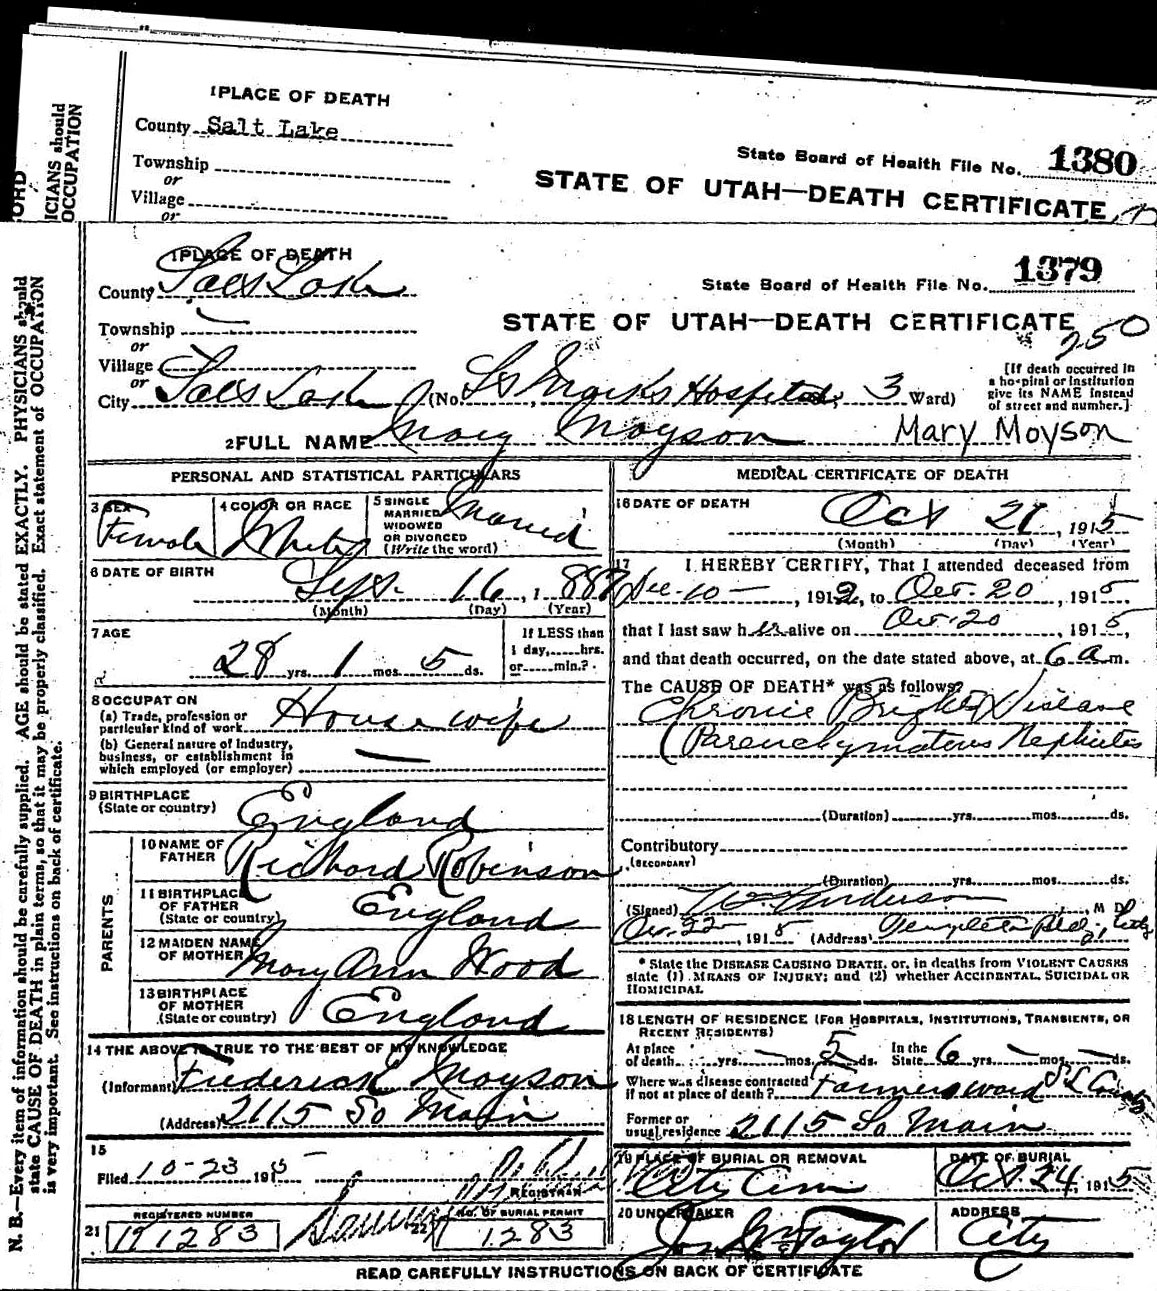 1 PLACE OF DEATH
County Salt Lake
Township
or
Village
or
State Board of Health File No. 1380
STATE OF UTAH—DEATH CERTIFICATE
ORD
ICIANS should
OCCUPATION
N. B.—Every item of information should be carefully supplied. AGE should be stated EXACTLY. PHYSICIANS should
state CAUSE OF DEATH in plain terms, so that it may be properly classified. Exact statement of OCCUPATION
is very important. See instructions on back of certificate.
1 PLACE OF DEATH
County Salt Lake
State Board of Health File No. 1379
Township
or
STATE OF UTAH—DEATH CERTIFICATE
250
Village
or
City Salt Lake (No. St Marks Hospital, 3 Ward)
[If death occurred in
a hospital or institution
give its NAME instead
of street and number.]
2 FULL NAME Mary Moyson Mary Moyson
PERSONAL AND STATISTICAL PARTICULARS
3 SEX Female
4 COLOR OR RACE White
5 SINGLE
MARRIED
WIDOWED
OR DIVORCED
(Write the word) Married
6 DATE OF BIRTH Sept. 16, 1887
(Month) (Day) (Year)
7 AGE
28 yrs. 1 mos. 5 ds.
If LESS than
1 day, hrs.
or min.?
8 OCCUPATON
(a) Trade, profession or
particular kind of work House wife
(b) General nature of industry,
business, or establishment in
which employed (or employer)
9 BIRTHPLACE
(State or country) England
PARENTS
10 NAME OF
FATHER Richard Robinson
11 BIRTHPLACE
OF FATHER
(State or country) England
12 MAIDEN NAME
OF MOTHER Mary Ann Wood
13 BIRTHPLACE
OF MOTHER
(State or country) England
14 THE ABOVE IS TRUE TO THE BEST OF MY KNOWLEDGE
(Informant) Frederick Moyson
(Address) 2115 So Main
15
Filed 10-23 1915
REGISTRAR
REGISTERED NUMBER
21 1283
NO. OF BURIAL PERMIT
22 1283
MEDICAL CERTIFICATE OF DEATH
16 DATE OF DEATH
Oct 21, 1915
(Month) (Day) (Year)
17 I HEREBY CERTIFY, That I attended deceased from
Dec-10-, 1912, to Oct. 20, 1915,
that I last saw her alive on Oct. 20, 1915,
and that death occurred, on the date stated above, at 6 a m.
The CAUSE OF DEATH* was as follows:
Chronic Brights Disease
(Parenchymatous Nephritis
(Duration) yrs. mos. ds.
Contributory
(SECONDARY)
(Duration) yrs. mos. ds.
(Signed) Anderson, M D.
Oct. 22, 1915 (Address) Templeton Bldg, City
* State the DISEASE CAUSING DEATH, or, in deaths from VIOLENT CAUSES
state (1) MEANS OF INJURY; and (2) whether ACCIDENTAL, SUICIDAL OR
HOMICIDAL
18 LENGTH OF RESIDENCE (FOR HOSPITALS, INSTITUTIONS, TRANSIENTS, OR
RECENT RESIDENTS)
At place
of death yrs. mos. 5 ds. In the
State 6 yrs. mos. ds.
Where was disease contracted
if not at place of death? Farmers Ward S L County
Former or
usual residence 2115 So Main
19 PLACE OF BURIAL OR REMOVAL
City Cem
DATE OF BURIAL
Oct. 24, 1915
20 UNDERTAKER
Taylor
ADDRESS
City
READ CAREFULLY INSTRUCTIONS ON BACK OF CERTIFICATE